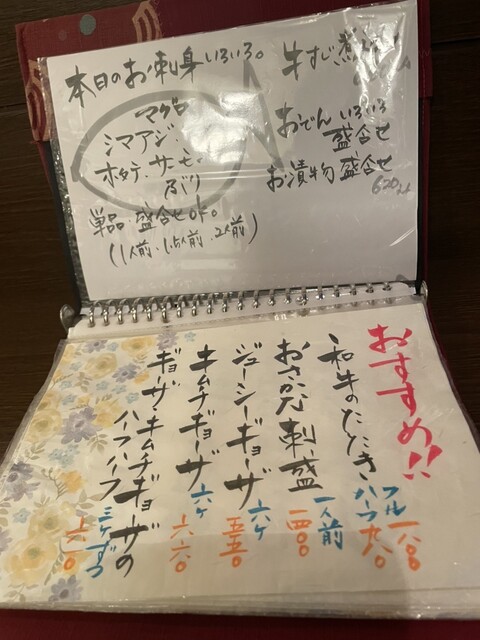 本日のお刺身いろいろ。
マグロ
シマアジ.
ホタテ.サーモン
単品.盛合せok。
(1人前・1.5人前・2人前)
牛すじ
おでんいろいろ
盛合せ
お漬物盛合せ
620
おすすめ!!
和牛のたたき
フル 一八〇〇
ハーフ 九八〇
おさかな刺盛
一人前
一四〇〇
ジューシーギョーザ
六ケ
五五〇
キムチギョーザ
六ケ
六六〇
ギョーザ・キムチギョーザの
ハーフハーフ
三ケずつ
六一〇